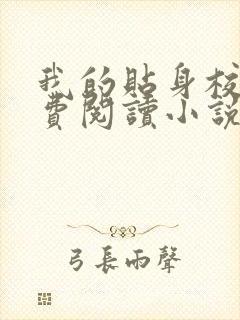 我的貼身校
費閱讀小說
弓長雨聲